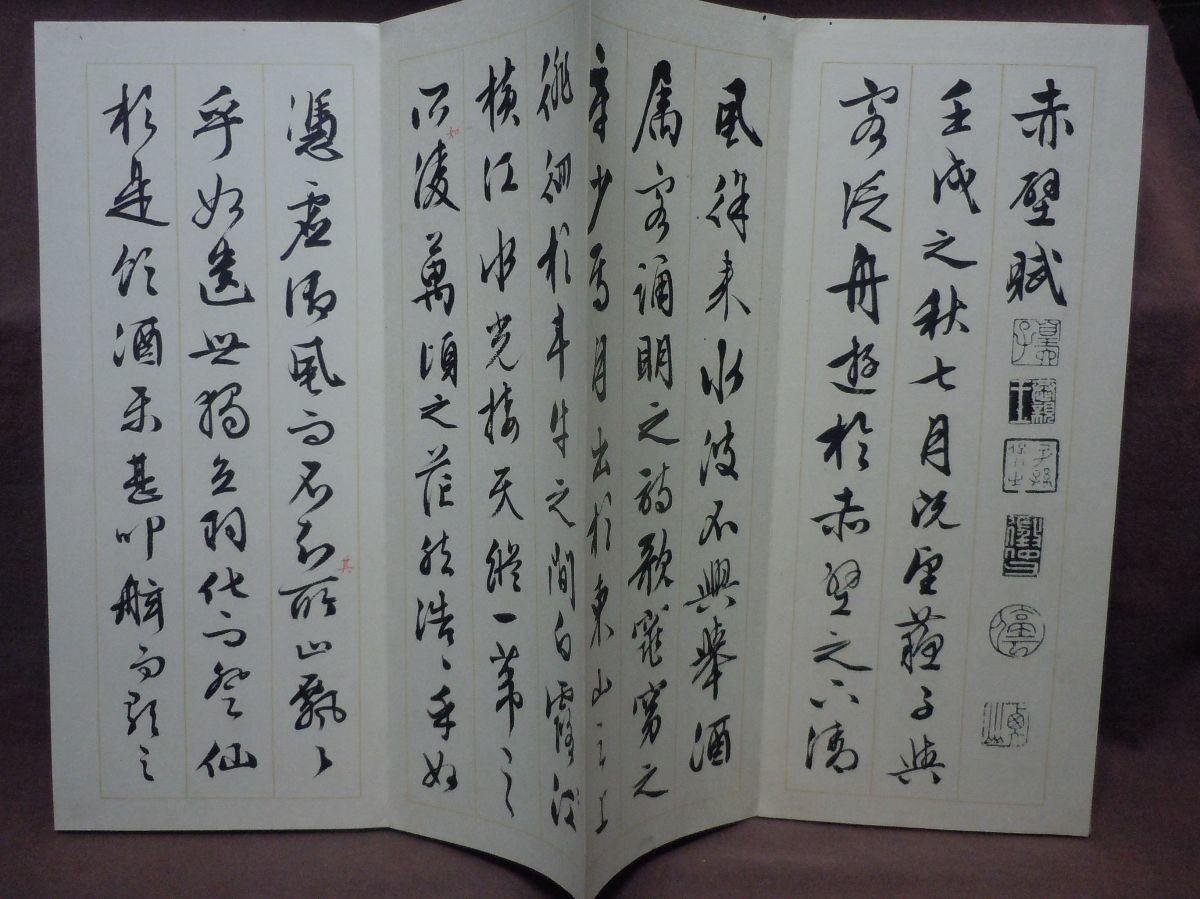 赤壁賦
壬戌之秋七月既望蘇子與
客泛舟遊於赤壁之下清
風徐來水波不興舉酒
屬客誦明之詩歌窈窕之
章少焉月出於東山之上
徘徊於斗牛之間白露
橫江水光接天縱一葦之
所如陵萬頃之茫然浩〻乎如
憑虛御風而不知其所止飄〻
乎如遺世獨立羽化而登仙
於是飲酒樂甚叩舷而歌之